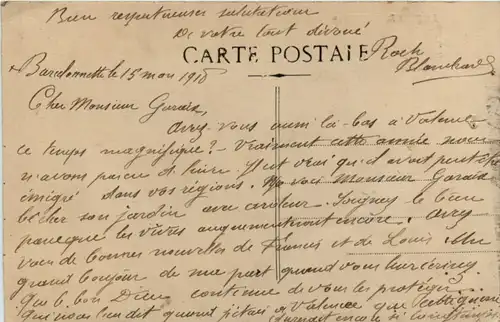 Bien respectueuses salutations
De votre tout dévoué
Roch
Blanchard
CARTE POSTALE
Barcelonnette le 15 mars 1918
Cher Monsieur Garais,
Avez-vous aussi là-bas à Valence
ce temps magnifique? Vraiment cette année nous
n'avons pas eu d'hiver. Il est vrai qu'il avait peut-être
émigré dans vos régions. Monsieur Garais
bêcher son jardin avec ardeur. Soignez le bien
parceque les vivres augmenteront encore. Avez
vous de bonnes nouvelles de Francis et de Louis. Un
grand bonjour de ma part quand vous leur écrirez
Que le bon Dieu continue de vous les protéger.
quand j'étais à Valence que